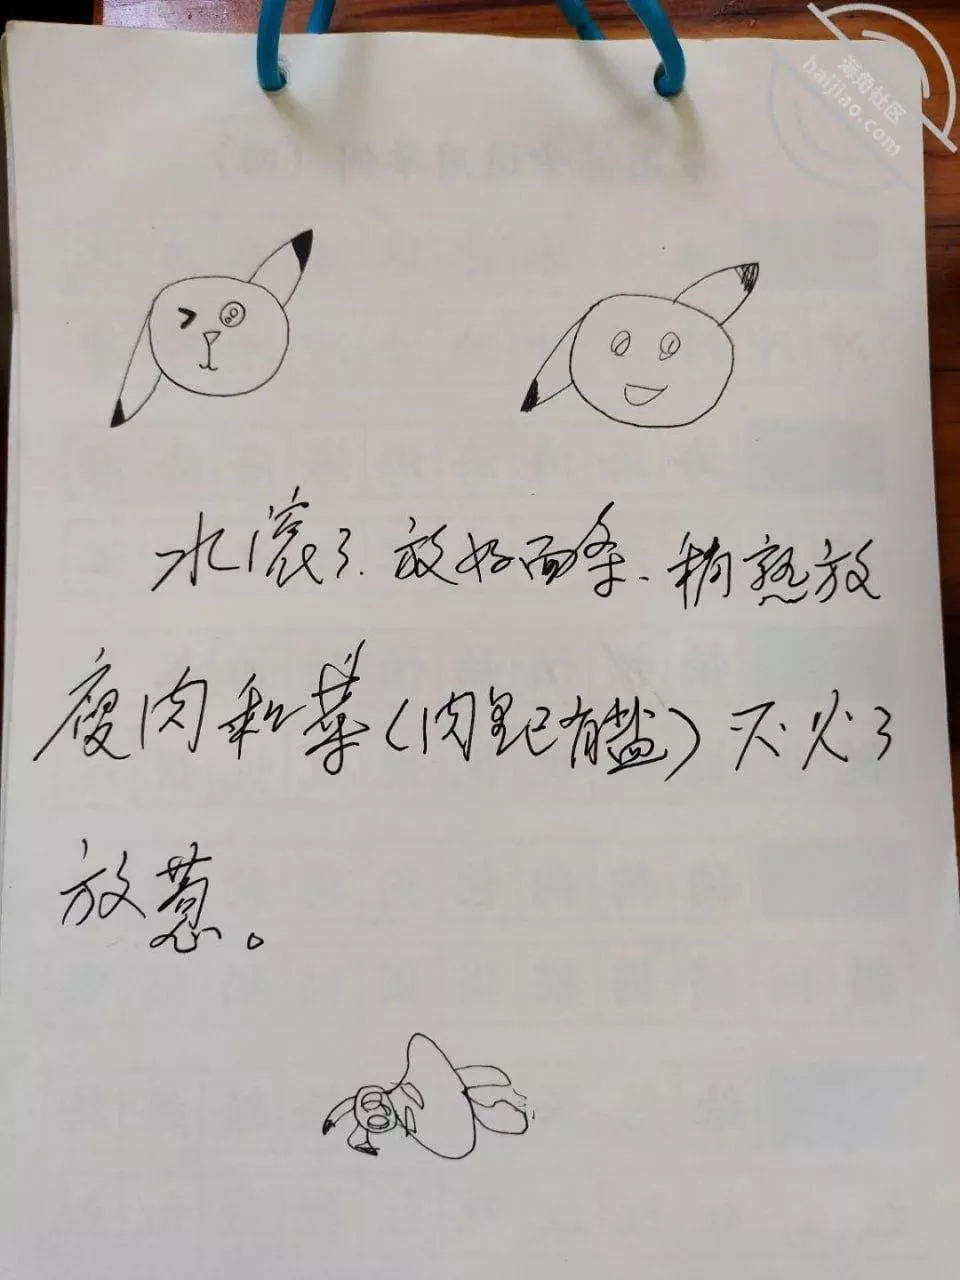 海角社区
haijiao.com
水滚了.放好面条.稍熟放
瘦肉和菜(肉里已有盐)灭火了
放葱。